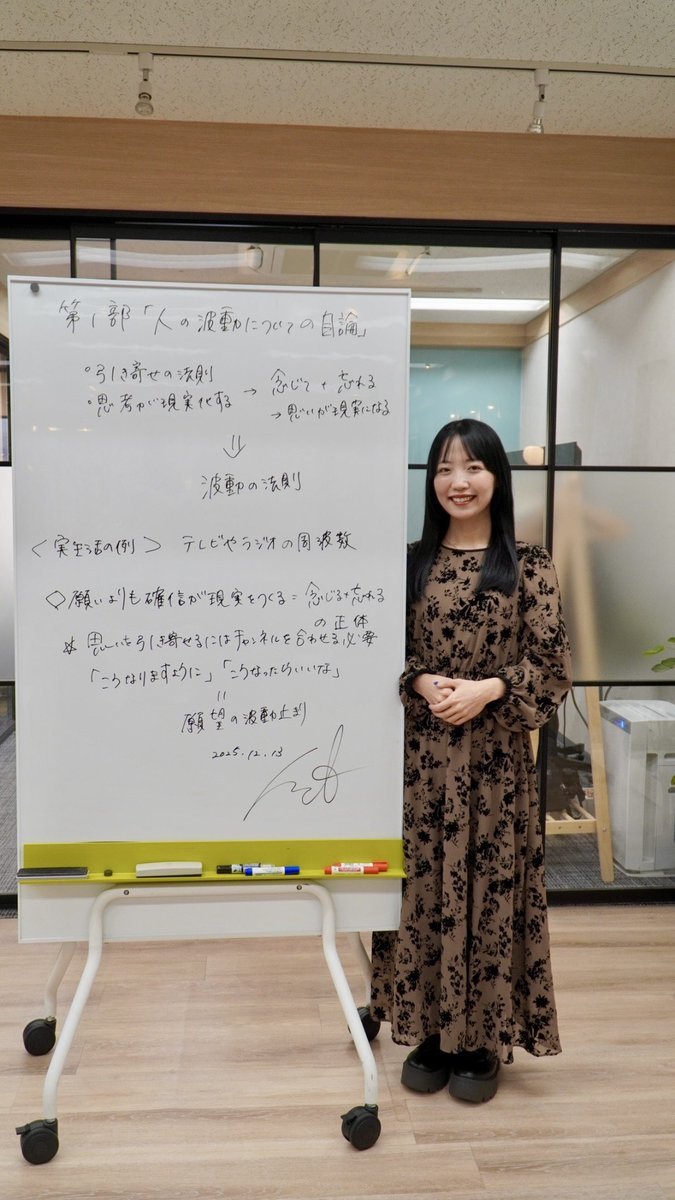 第1部「人の波動についての自論」
・引き寄せの法則
・思考が現実化する → 念じて+忘れる
→思いが現実になる
⇓
波動の法則
〈実生活の例〉 テレビやラジオの周波数
◇願いよりも確信が現実をつくる=念じる+忘れる
の正体
※思いを引き寄せるにはチャンネルを合わせる必要
「こうなりますように」「こうなったらいいな」
=
願望の波動止まり
2025.12.13